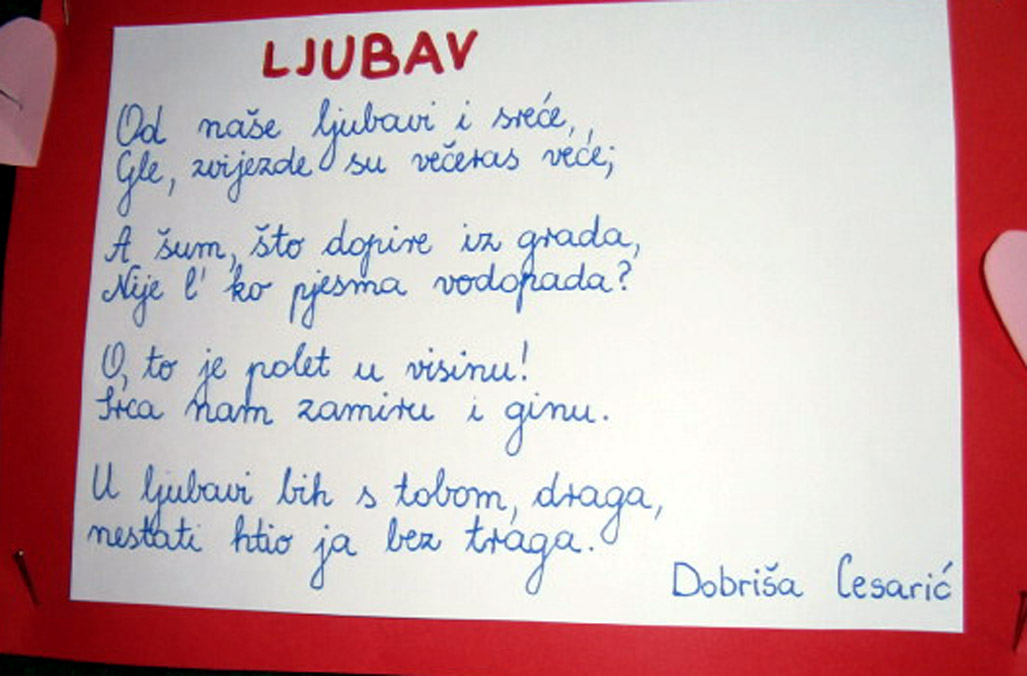 LJUBAV
Od naše ljubavi i sreće,
Gle, zvijezde su večeras veće;
A šum, što dopire iz grada,
Nije l' ko pjesma vodopada?
O, to je polet u visinu!
Srca nam zamiru i ginu.
U ljubavi bih s tobom, draga,
nestati htio ja bez traga.
Dobriša Cesarić